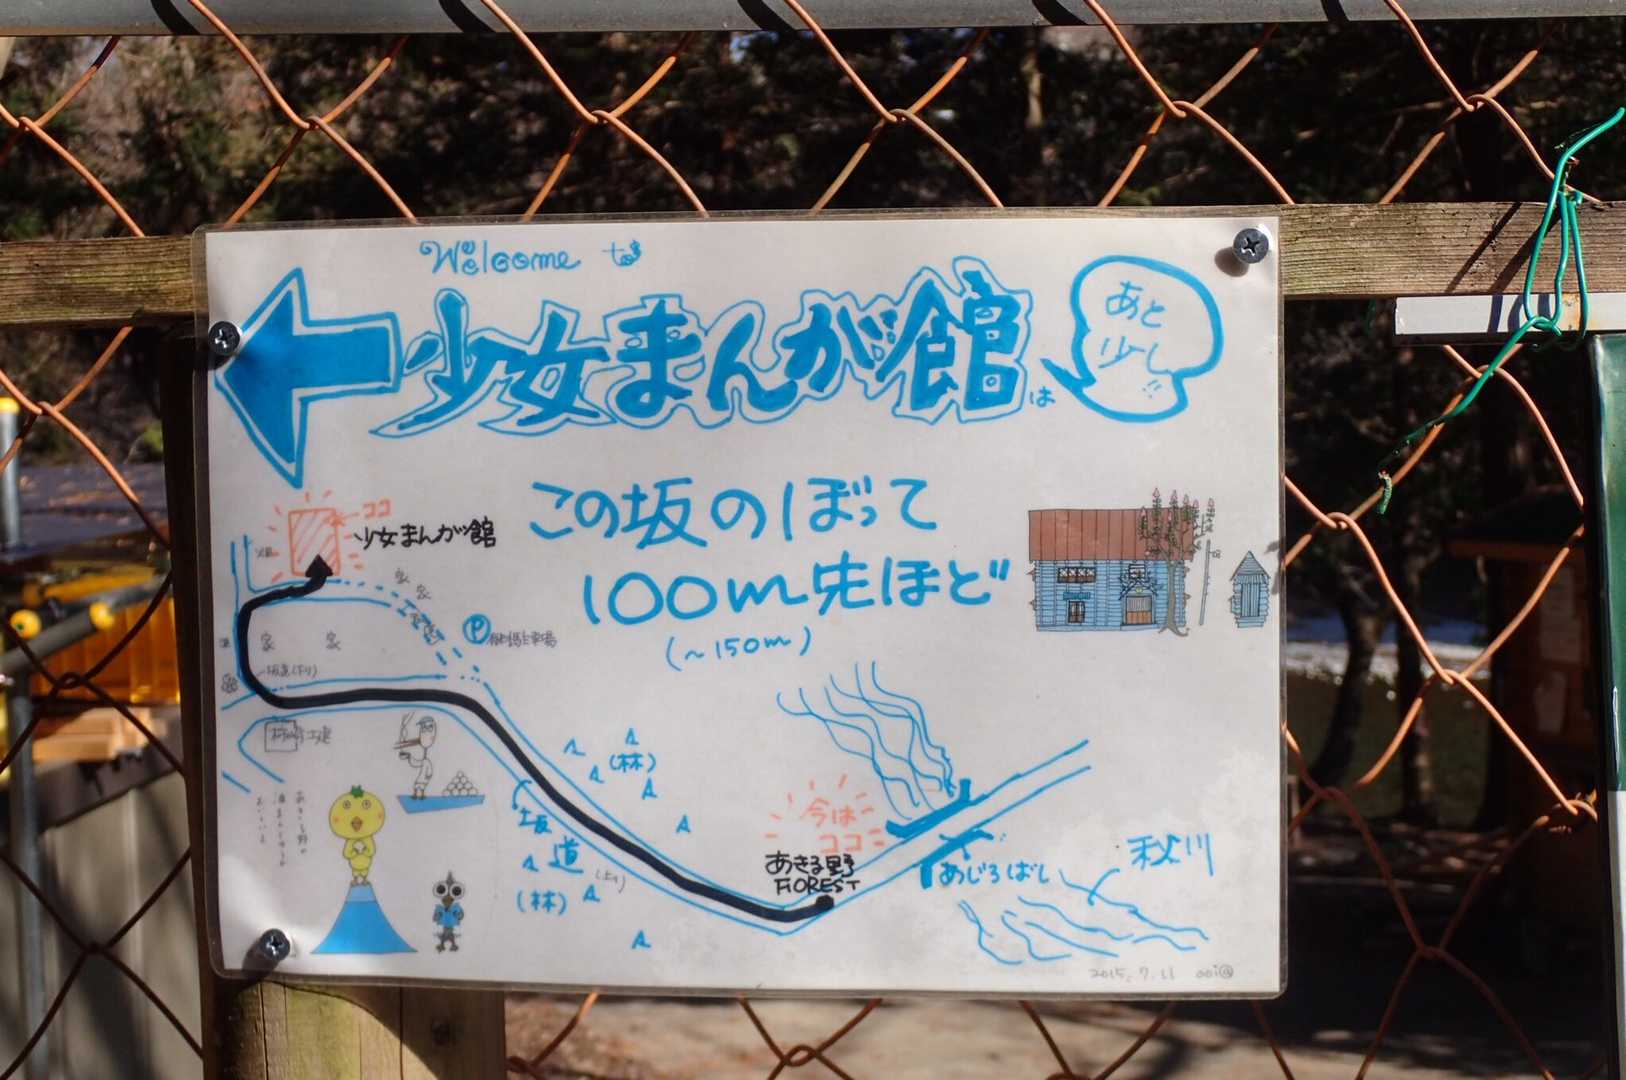 Welcome to
少女まんが館は
あと
少し!!
この坂のぼって
100m先ほど
(~150m)
ココ
少女まんが館
畑
家
家
家
家
P
坂道(下り)
(林)
坂
道
(上り)
(林)
今は
ココ
あきる野
FOREST
あじろばし
秋川
2015.7.11